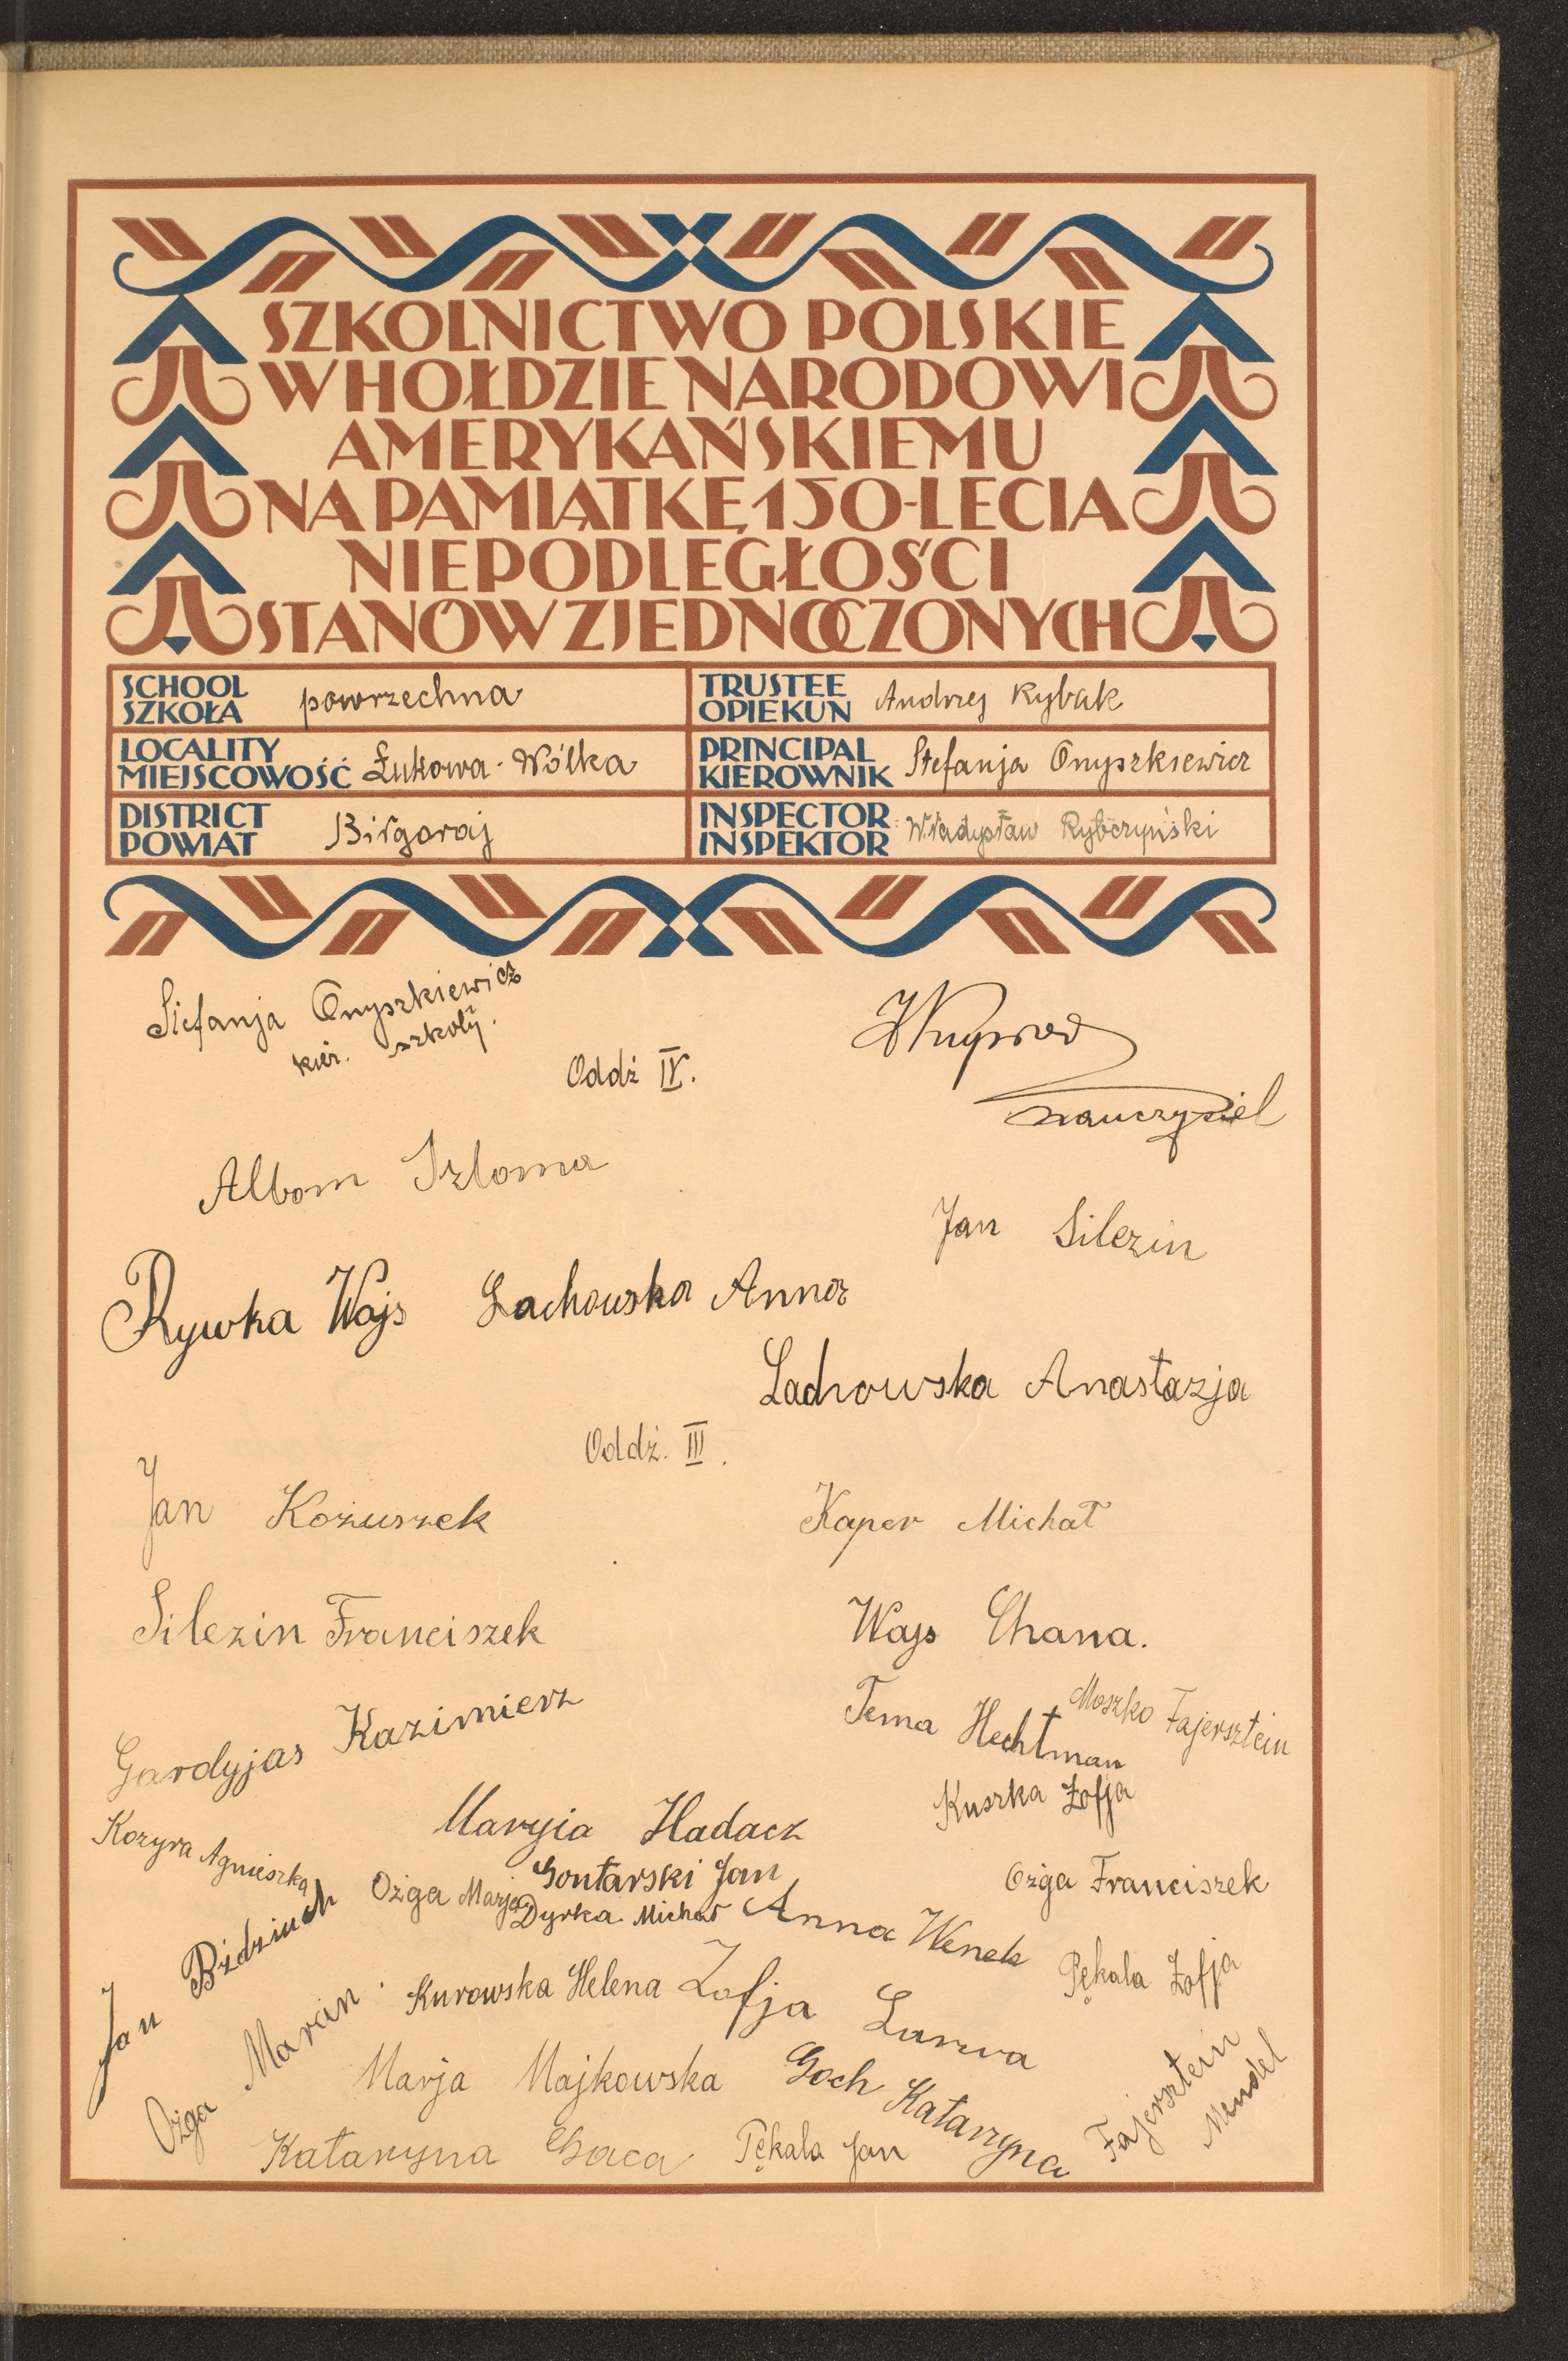 SZKOLNICTWO POLSKIE
W HOŁDZIE NARODOWI
AMERYKAŃSKIEMU
NA PAMIĄTKĘ 150-LECIA
NIEPODLEGŁOŚCI
STANÓW ZJEDNOCZONYCH
SCHOOL
SZKOŁA powrzechna
TRUSTEE
OPIEKUN Andrzej Rybak
LOCALITY
MIEJSCOWOŚĆ Łukowa - Wólka
PRINCIPAL
KIEROWNIK Stefanja Onyszkiewicz
DISTRICT
POWIAT Biłgoraj
INSPECTOR
INSPEKTOR Władysław Rybczyński
Stefanja Onyszkiewicz
kier. szkoły.
nauczyciel
Oddź IV.
Albom Szloma
Jan Silezin
Rywka Wajs
Lachowska Anna
Lachowska Anastazja
Oddź. III.
Jan Kożuszek
Kaper Michał
Silezin Franciszek
Wajs Chana.
Gardyjas Kazimierz
Tema Hechtman
Moszko Fajersztein
Kuszka Zofja
Maryia Hadacz
Kozyra Agnieszka
Gontarski Jan
Ożga Marja
Dyrka Michał
Ożga Franciszek
Anna Wenek
Jan Bździuch
Pękala Zofja
Kurowska Helena
Zofja
Ożga Marcin
Marja Majkowska
Goch Katarzyna
Fajersztein
Mendel
Katarzyna
Pękala Jan